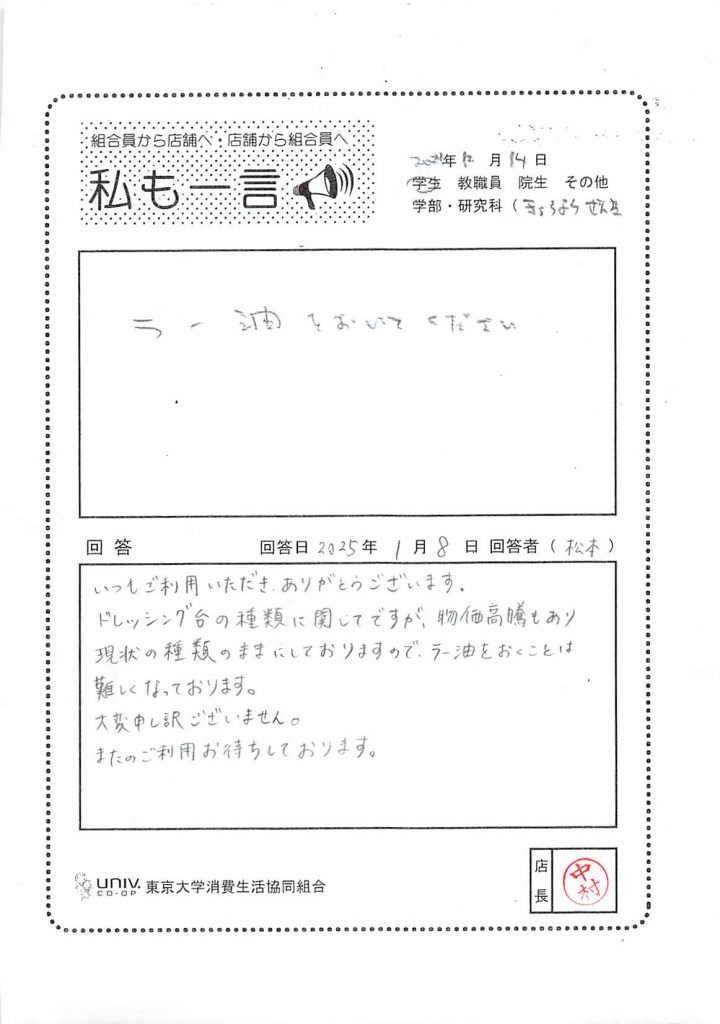 組合員から店舗へ・店舗から組合員へ
私も一言
年12月14日
学生 教職員 院生 その他
学部・研究科（
ラー油をおいてください
回答 回答日2025年1月8日 回答者（松本）
いつもご利用いただき、ありがとうございます。
ドレッシング台の種類に関してですが、物価高騰もあり
現状の種類のままにしておりますので、ラー油をおくことは
難しくなっております。
大変申し訳ございません。
またのご利用お待ちしております。
UNIV.
CO-OP
東京大学消費生活協同組合
店長
中村